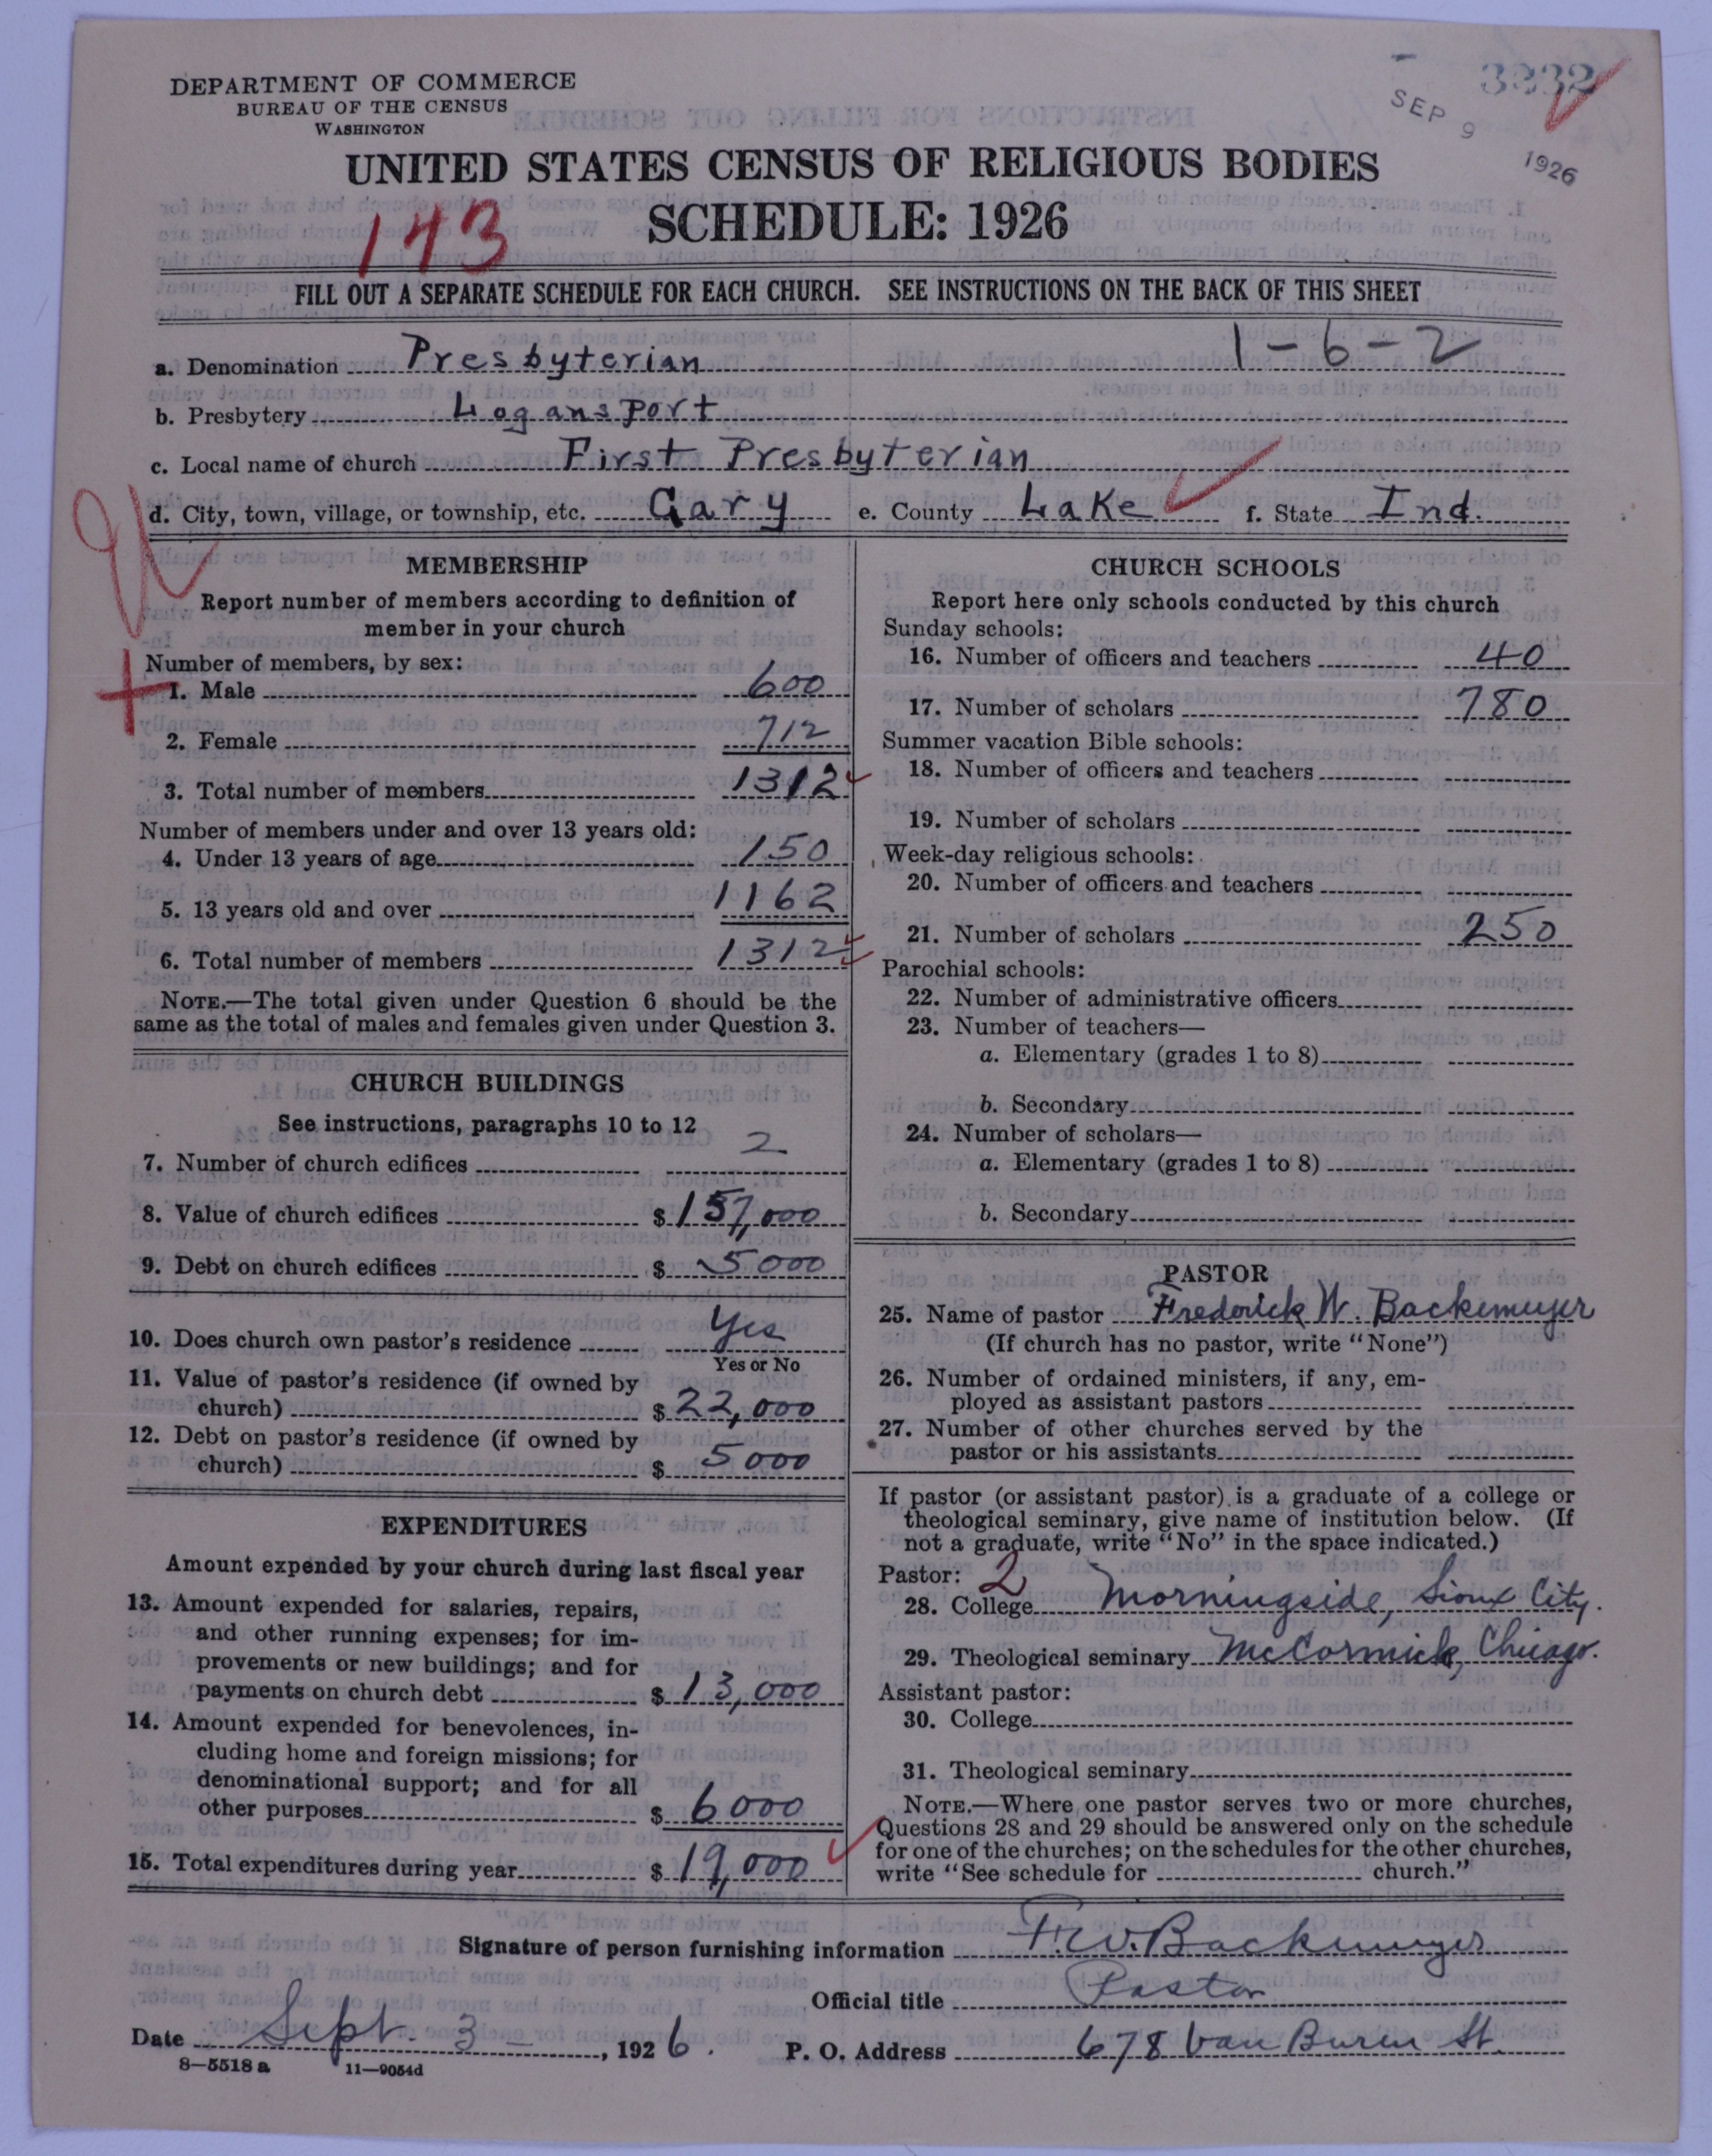 DEPARTMENT OF COMMERCE
BUREAU OF THE CENSUS
WASHINGTON
3832
SEP 9 1926
UNITED STATES CENSUS OF RELIGIOUS BODIES
SCHEDULE: 1926
143
FILL OUT A SEPARATE SCHEDULE FOR EACH CHURCH. SEE INSTRUCTIONS ON THE BACK OF THIS SHEET
1-6-2
a. Denomination Presbyterian
b. Presbytery Logansport
c. Local name of church First Presbyterian
d. City, town, village, or township, etc. Gary e. County Lake f. State Ind.
MEMBERSHIP
Report number of members according to definition of
member in your church
Number of members, by sex:
1. Male 600
2. Female 712
3. Total number of members 1312
Number of members under and over 13 years old:
4. Under 13 years of age 150
5. 13 years old and over 1162
6. Total number of members 1312
NOTE.—The total given under Question 6 should be the
same as the total of males and females given under Question 3.
CHURCH BUILDINGS
See instructions, paragraphs 10 to 12
7. Number of church edifices 2
8. Value of church edifices $157,000
9. Debt on church edifices $5000
10. Does church own pastor's residence Yes
Yes or No
11. Value of pastor's residence (if owned by
church) $22,000
12. Debt on pastor's residence (if owned by
church) $5000
EXPENDITURES
Amount expended by your church during last fiscal year
13. Amount expended for salaries, repairs,
and other running expenses; for im-
provements or new buildings; and for
payments on church debt $13,000
14. Amount expended for benevolences, in-
cluding home and foreign missions; for
denominational support; and for all
other purposes $6000
15. Total expenditures during year $19,000
CHURCH SCHOOLS
Report here only schools conducted by this church
Sunday schools:
16. Number of officers and teachers 40
17. Number of scholars 780
Summer vacation Bible schools:
18. Number of officers and teachers
19. Number of scholars
Week-day religious schools:
20. Number of officers and teachers
21. Number of scholars 250
Parochial schools:
22. Number of administrative officers
23. Number of teachers—
a. Elementary (grades 1 to 8)
b. Secondary
24. Number of scholars—
a. Elementary (grades 1 to 8)
b. Secondary
PASTOR
25. Name of pastor Frederick W. Backemeyer
(If church has no pastor, write "None")
26. Number of ordained ministers, if any, em-
ployed as assistant pastors
27. Number of other churches served by the
pastor or his assistants
If pastor (or assistant pastor) is a graduate of a college or
theological seminary, give name of institution below. (If
not a graduate, write "No" in the space indicated.)
Pastor: 2
28. College Morningside, Sioux City.
29. Theological seminary McCormick, Chicago.
Assistant pastor:
30. College
31. Theological seminary
NOTE.—Where one pastor serves two or more churches,
Questions 28 and 29 should be answered only on the schedule
for one of the churches; on the schedules for the other churches,
write "See schedule for church."
Signature of person furnishing information F. W. Backemeyer
Official title Pastor
Date Sept. 3, 1926. P. O. Address 678 Van Buren St.
8—5518a 11—9054d